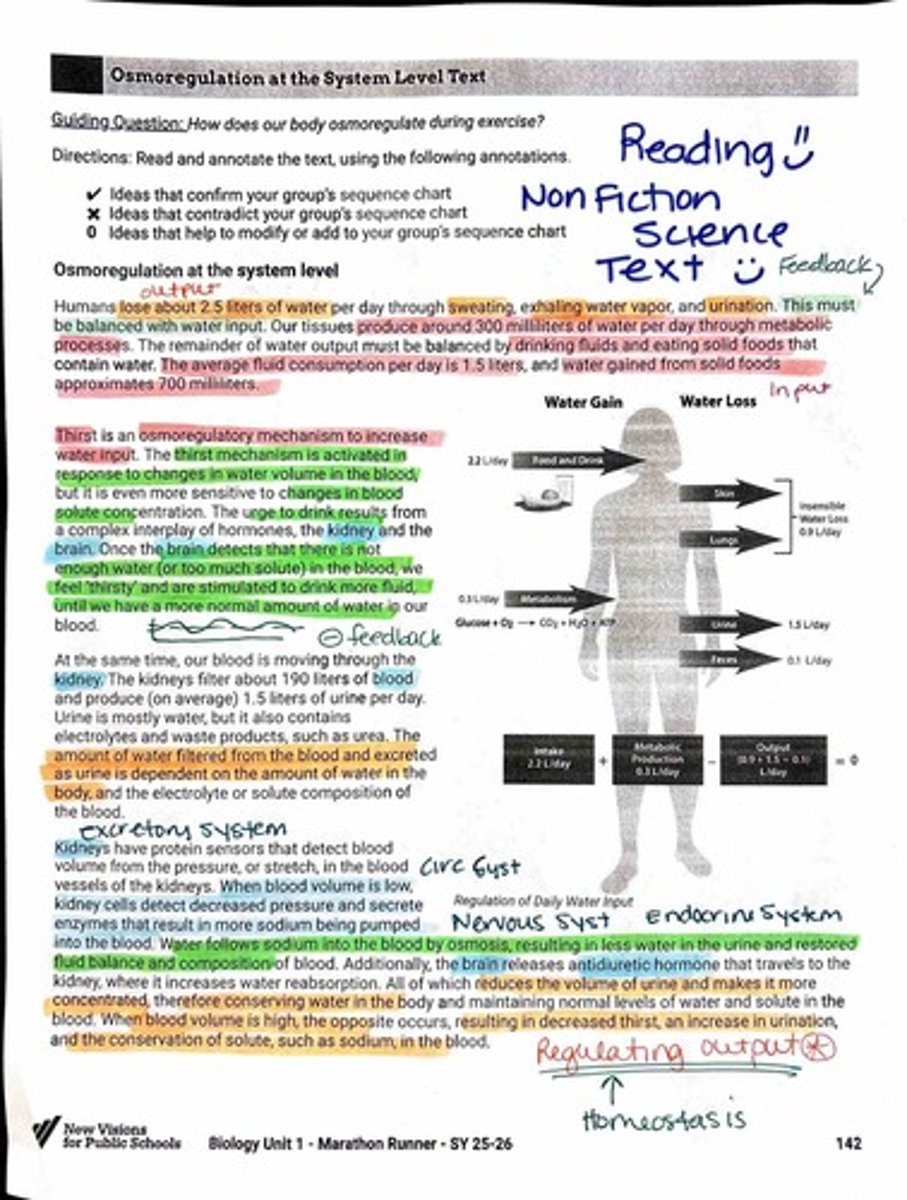 Osmoregulation at the System Level Text
Guiding Question: How does our body osmoregulate during exercise?
Directions: Read and annotate the text, using the following annotations.
✔ Ideas that confirm your group's sequence chart
✖ Ideas that contradict your group's sequence chart
0 Ideas that help to modify or add to your group's sequence chart
Reading
Non Fiction
Science
Text
Feedback
Osmoregulation at the system level
output
Humans lose about 2.5 liters of water per day through sweating, exhaling water vapor, and urination. This must
be balanced with water input. Our tissues produce around 300 milliliters of water per day through metabolic
processes. The remainder of water output must be balanced by drinking fluids and eating solid foods that
contain water. The average fluid consumption per day is 1.5 liters, and water gained from solid foods
approximates 700 milliliters.
Input
Thirst is an osmoregulatory mechanism to increase
water input. The thirst mechanism is activated in
response to changes in water volume in the blood,
but it is even more sensitive to changes in blood
solute concentration. The urge to drink results from
a complex interplay of hormones, the kidney and the
brain. Once the brain detects that there is not
enough water (or too much solute) in the blood, we
feel 'thirsty' and are stimulated to drink more fluid,
until we have a more normal amount of water in our
blood.
⊖ feedback
At the same time, our blood is moving through the
kidney. The kidneys filter about 190 liters of blood
and produce (on average) 1.5 liters of urine per day.
Urine is mostly water, but it also contains
electrolytes and waste products, such as urea. The
amount of water filtered from the blood and excreted
as urine is dependent on the amount of water in the
body, and the electrolyte or solute composition of
the blood.
Water Gain
Water Loss
2.2 L/day
Food and Drink
Skin
Lungs
Insensible
Water Loss
0.9 L/day
0.3 L/day
Metabolism
Glucose + O₂ → CO₂ + H₂O + ATP
Urine
1.5 L/day
Feces
0.1 L/day
Intake
2.2 L/day
+
Metabolic
Production
0.3 L/day
−
Output
(0.9 + 1.5 + 0.1)
L/day
= 0
Regulation of Daily Water Input
excretory system
Circ Syst
Nervous Syst
Endocrine System
Kidneys have protein sensors that detect blood
volume from the pressure, or stretch, in the blood
vessels of the kidneys. When blood volume is low,
kidney cells detect decreased pressure and secrete
enzymes that result in more sodium being pumped
into the blood. Water follows sodium into the blood by osmosis, resulting in less water in the urine and restored
fluid balance and composition of blood. Additionally, the brain releases antidiuretic hormone that travels to the
kidney, where it increases water reabsorption. All of which reduces the volume of urine and makes it more
concentrated, therefore conserving water in the body and maintaining normal levels of water and solute in the
blood. When blood volume is high, the opposite occurs, resulting in decreased thirst, an increase in urination,
and the conservation of solute, such as sodium, in the blood.
Regulating output
Homeostasis
New Visions
for Public Schools
Biology Unit 1 - Marathon Runner - SY 25-26
142